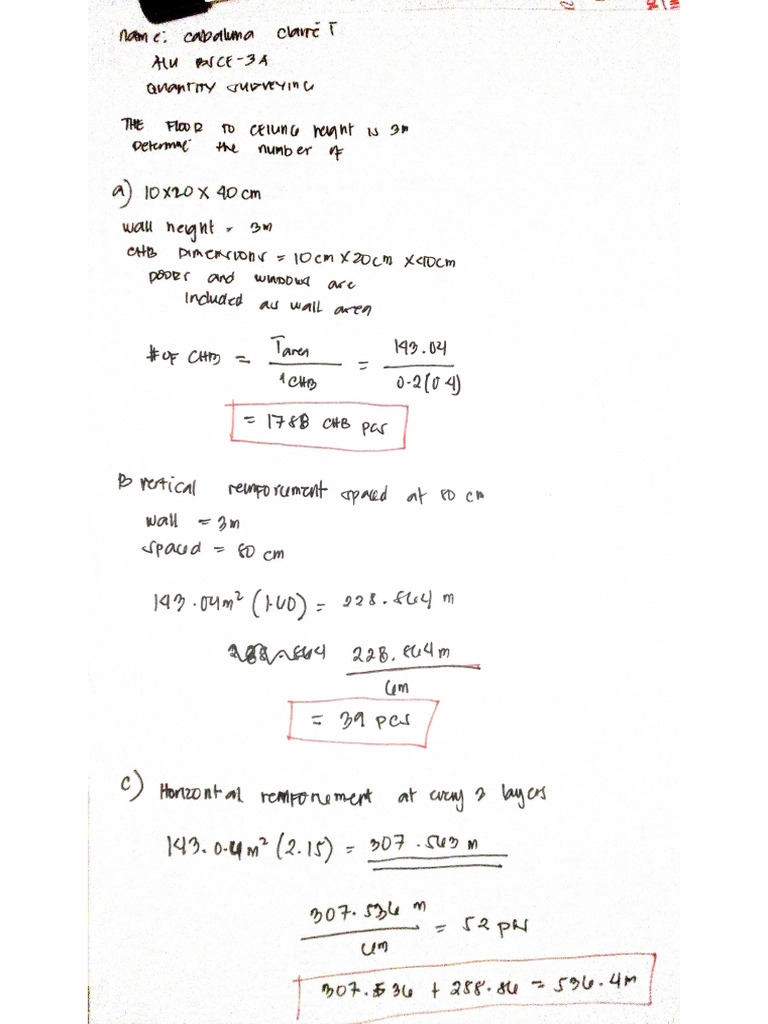 name: cabaluna claire T
AIU BSCE-3A
QUANTITY SURVEYING
THE FLOOR TO CEILING height is 3m
Determine the number of
a) 10x20 x 40cm
wall height = 3m
CHB DIMENSIONS = 10cm x 20cm x 40cm
DOORS and WINDOWS are
included as wall area
# of CHB = Tarea / 1CHB = 143.04 / 0.2(0.4)
= 1788 CHB pcs
B vertical reinforcement spaced at 80 cm
wall = 3m
spaced = 80 cm
143.04m² (1.60) = 228.864 m
228.864m / 6m
= 39 pcs
c) Horizontal reinforcement at every 3 layers
143.04m² (2.15) = 307.543 m
307.536 m / 6m = 52 pcs
307.536 + 288.86 = 536.4m